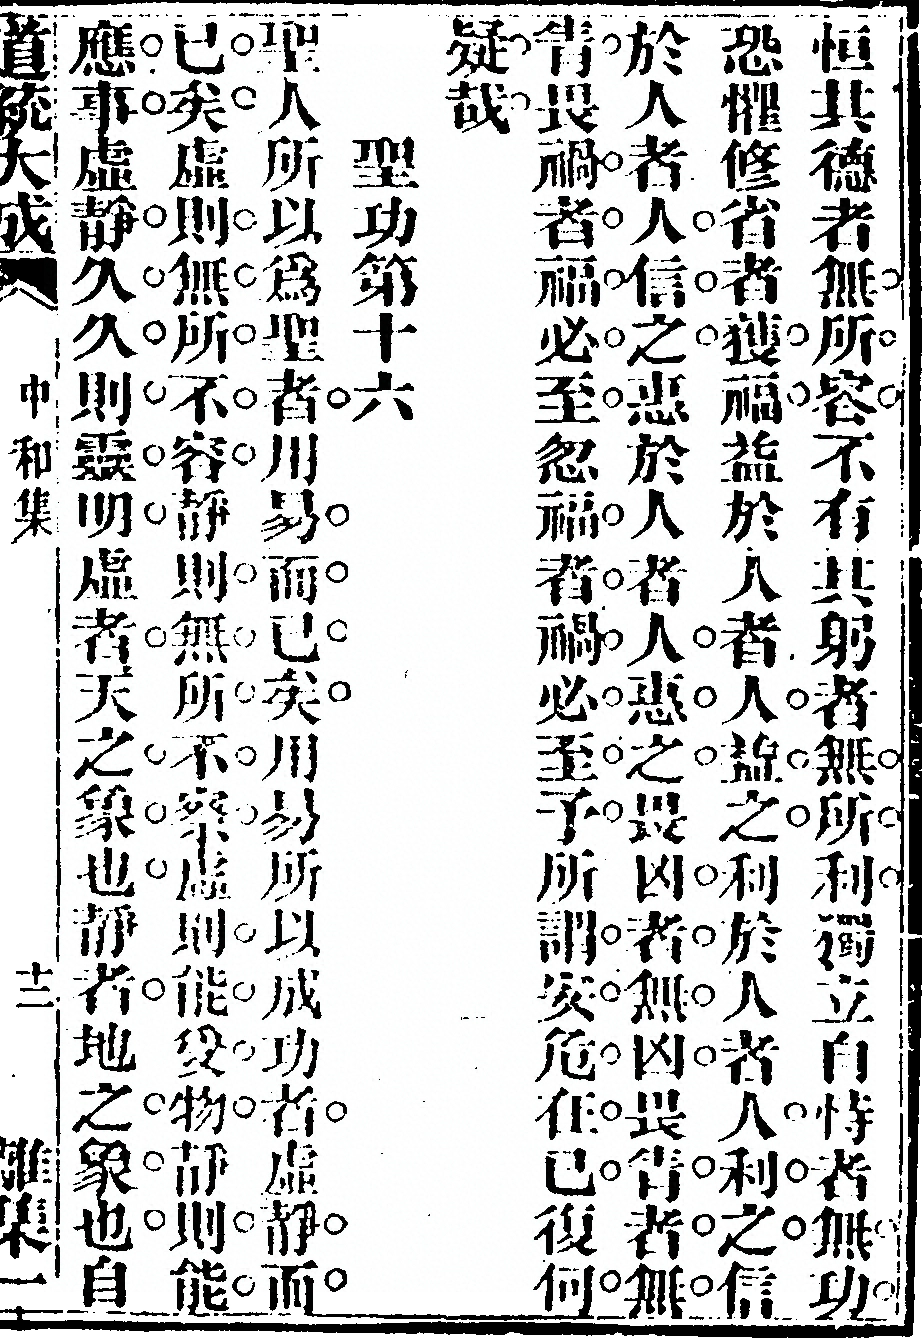 恒其德者無所容不有其躬者無所利獨立自恃者無功
恐懼修省者獲福益於人者人益之利於人者人利之信
於人者人信之惠於人者人惠之畏凶者無凶畏眚者無
眚畏禍者福必至忽福者禍必至予所謂安危在已復何
疑哉
聖功第十六
聖人所以爲聖者用易而已矣用易所以成功者虛靜而
已矣虛則無所不容靜則無所不察虛則能受物靜則能
應事虛靜久久則靈明虛者天之象也靜者地之象也自
道統大成
中和集
十二
雜集一